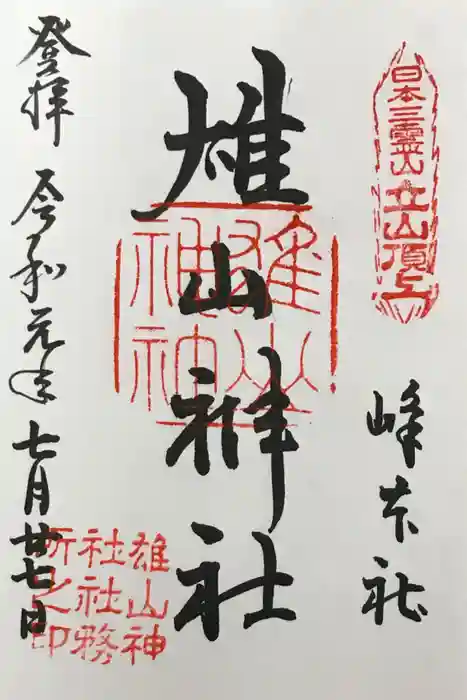 日本三霊山立山頂上
峰本社
雄山神社
雄山神神
雄山神
社社務
所之印
登拝 令和元年七月廿七日